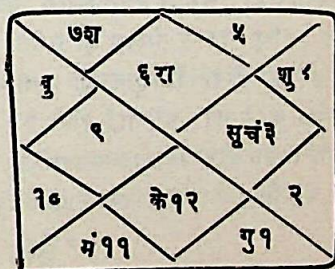 ७श ५
बु ६रा शु ४
९ सूचं३
१० के१२ २
मं११ गु१